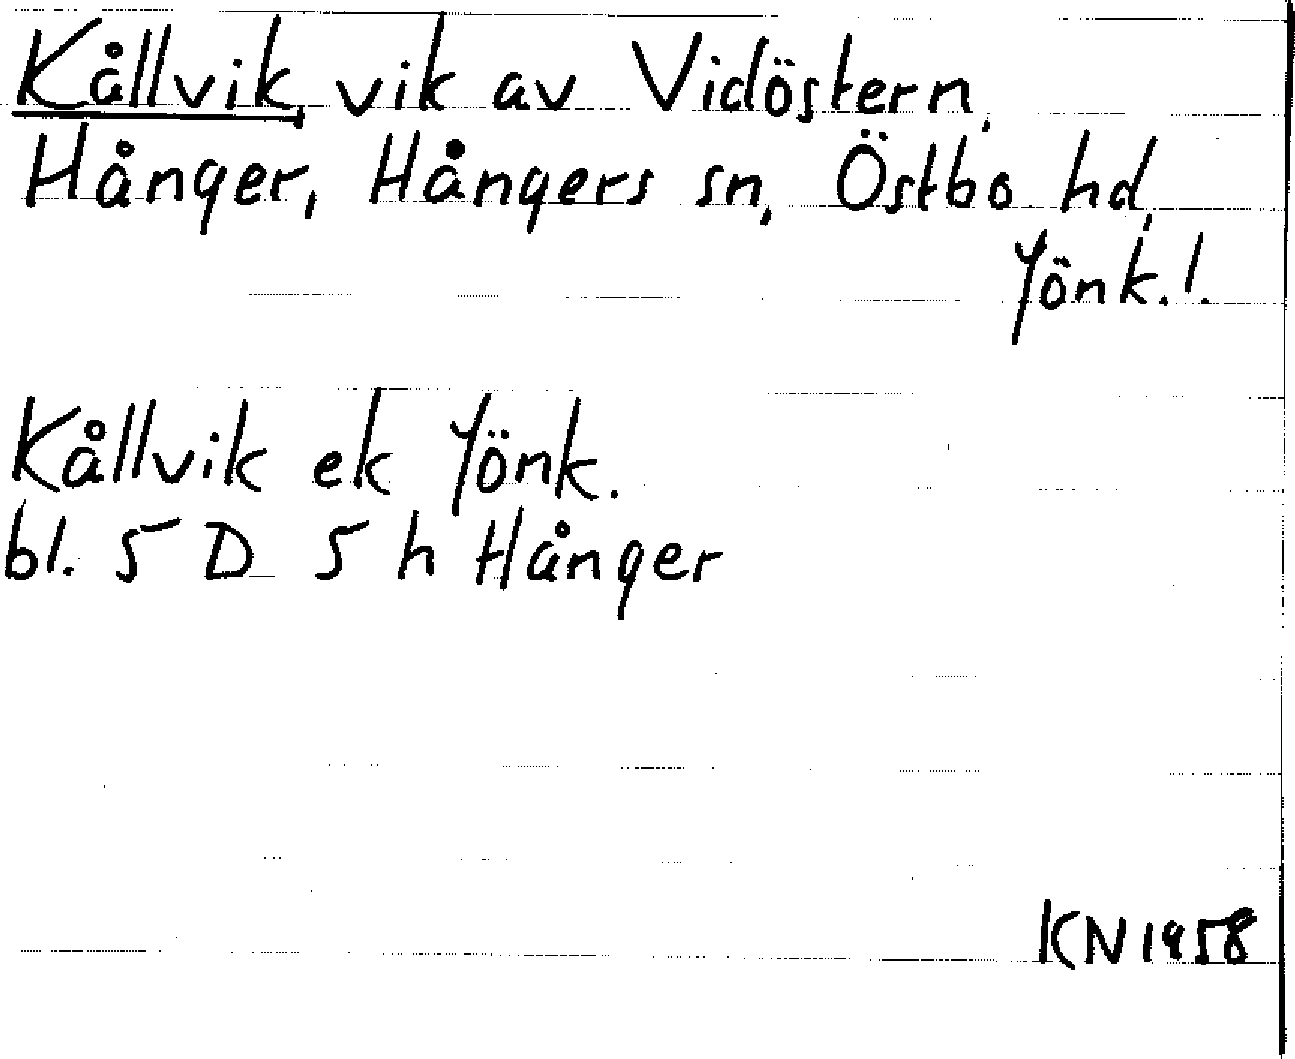 Kållvik, vik av Vidöstern,
Hånger, Hångers sn, Östbo hd,
Jönk. l.
Kållvik ek Jönk.
bl. 5 D 5 h Hånger
KN 1958